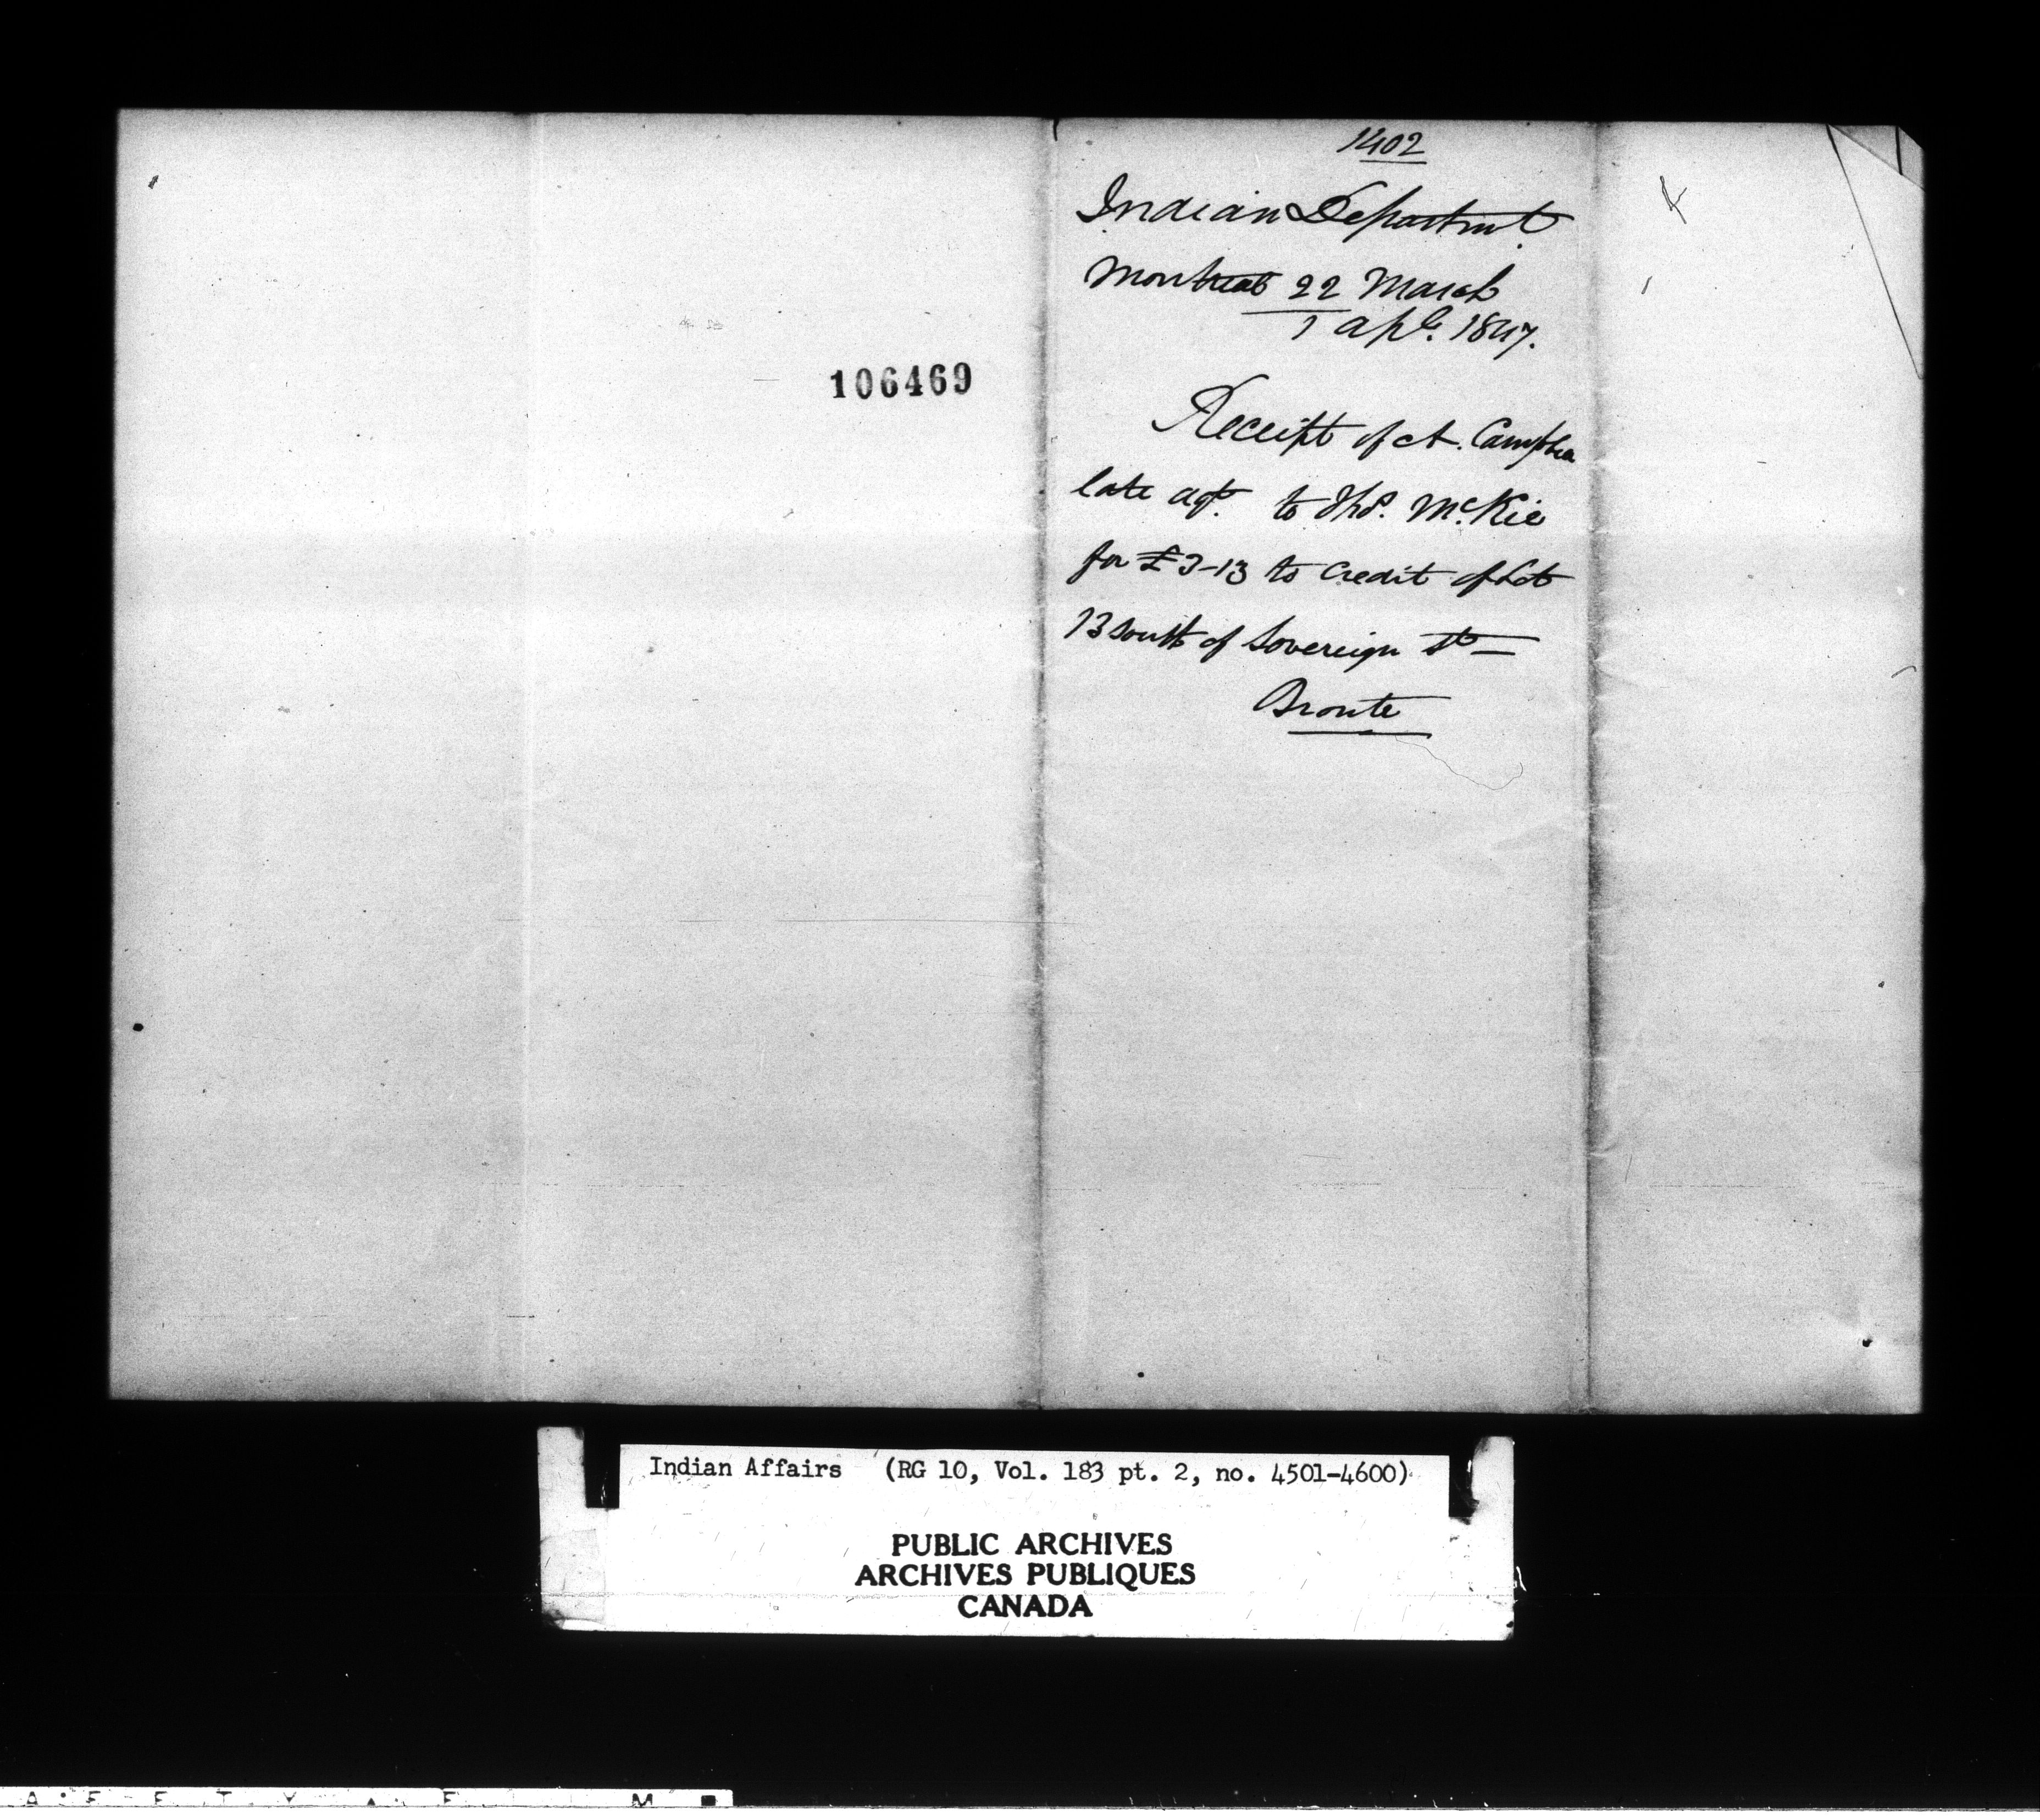 1402
Indian Departmnt.
Montreal 22 March
1 apl. 1847.
106469
Receipt of A. Campbe
late agt. to Thos. McKie
for £3-13 to credit of Lot
13 South of Sovereign St—
Bronte
Indian Affairs (RG 10, Vol. 183 pt. 2, no. 4501-4600)
PUBLIC ARCHIVES
ARCHIVES PUBLIQUES
CANADA